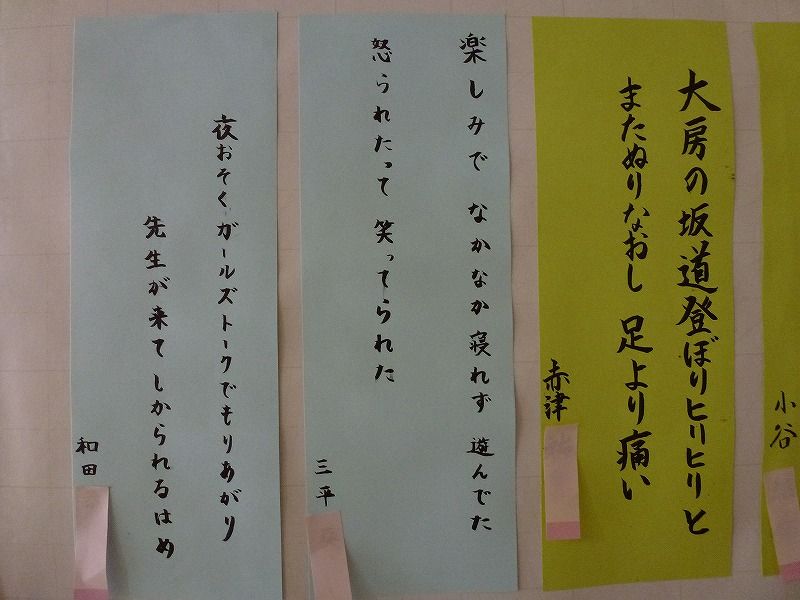 小谷
大房の坂道登ぼりヒリヒリと
またぬりなおし 足より痛い
赤津
楽しみで なかなか寝れず 遊んでた
怒られたって 笑ってられた
三平
夜おそく ガールズトークでもりあがり
先生が来てしかられるはめ
和田